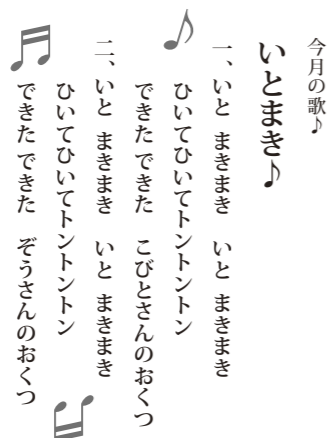 今月の歌♪
いとまき♪
一、いと まきまき いと まきまき
ひいてひいてトントントン
できた できた こびとさんのおくつ
二、いと まきまき いと まきまき
ひいてひいてトントントン
できた できた ぞうさんのおくつ